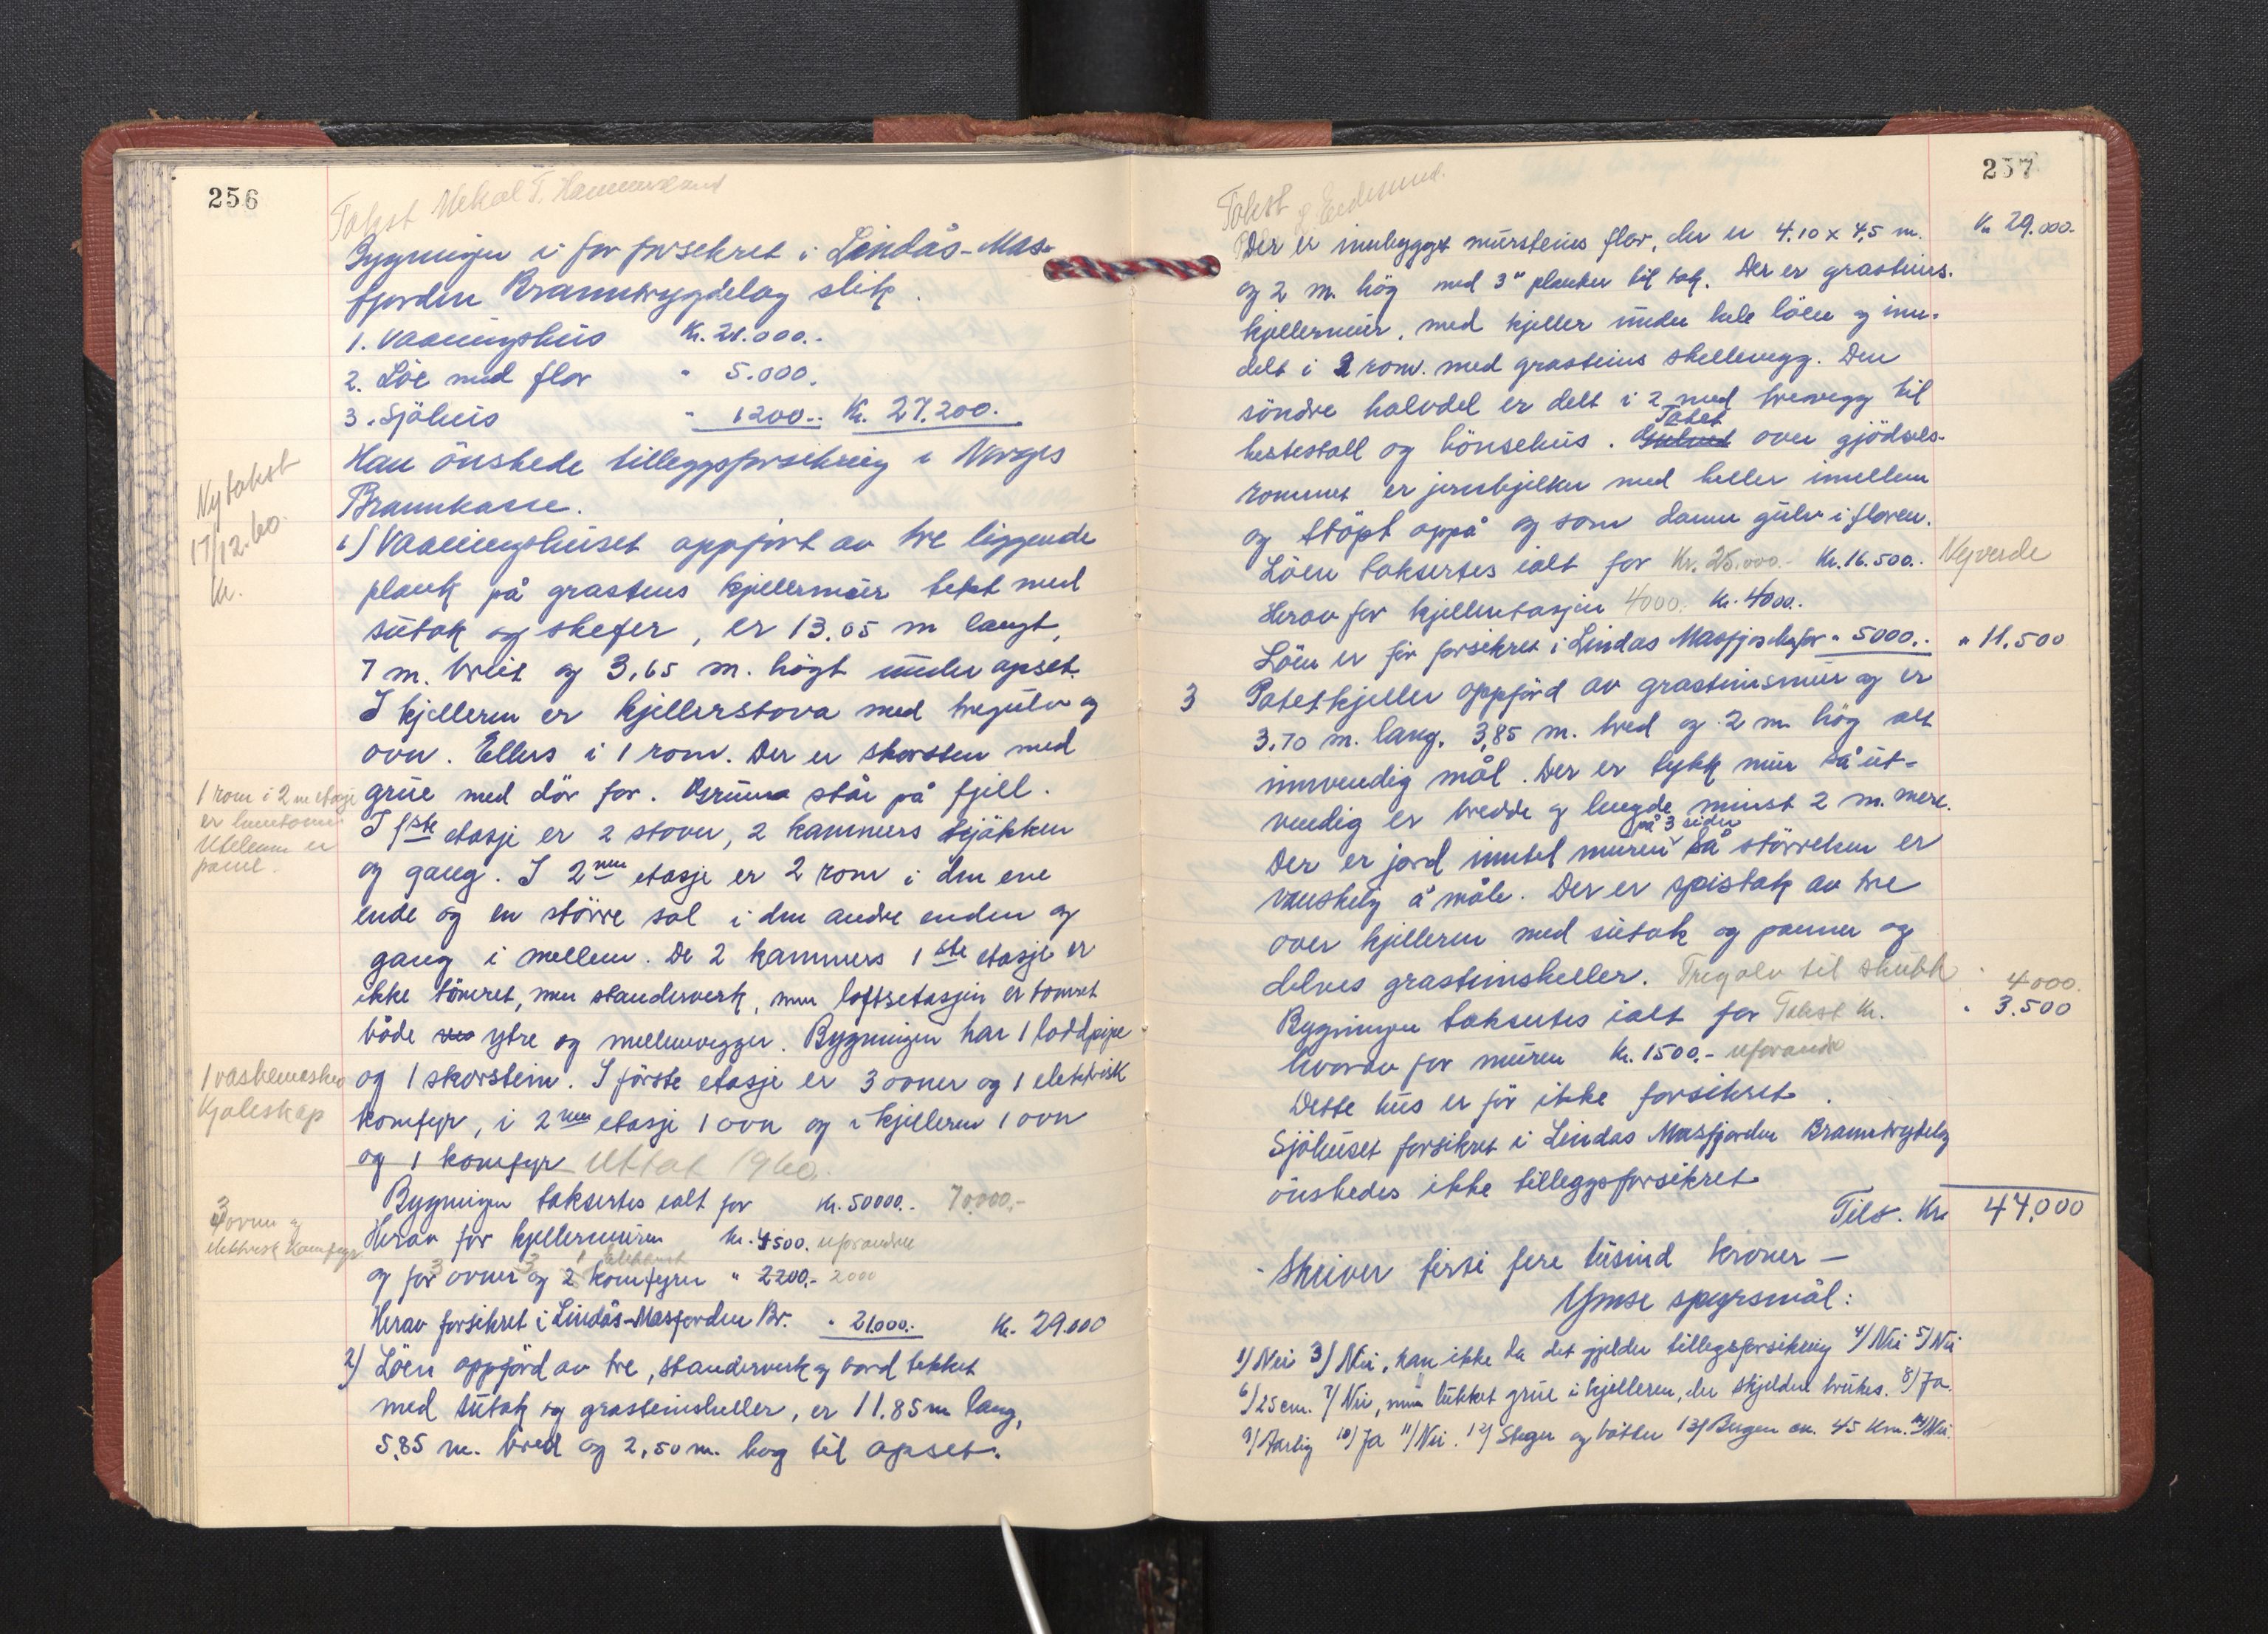 256
Takst Mikal T. Hammersland
Bygningen i før forsekret i Lindås-Mas-
fjorden Branntrygdelag slik.
1. Vaaningshus Kr. 21.000.-
2. Löe med flor " 5.000.
3. Sjöhus " 1200.- Kr. 27.200.
Han önskede tilleggsforsikring i Norges
Brannkasse.
Nytakst
17/12.60.
Kr.
1) Vaaningshuset oppfört av tre liggende
plank på grasteins kjellermúr tekt med
sutak og skefer, er 13.05 m langt,
7 m. breit og 3,65 m. högt under opset.
I kjelleren er kjellerstova med tregulv og
ovn. Ellers i 1 rom. Der er skorsten med
grue med dör for. Gruna står på fjell.
1 rom i 2 m etasje
er
Utelem er
panel.
I 1ste etasje er 2 stover, 2 kammers kjökken
og gang. I 2nen etasje er 2 rom i den ene
ende og en större sal i den andre enden og
gang i mellem. De 2 kammers 1ste etasje er
ikke tömret, men standerverk, men loftsetasjen er tomret
både ytre og mellemvegger. Bygningen har 1 loddpipe
og 1 skorstein. I förste etasje er 3 ovner og 1 elektrisk
1 vaskemaskin
Kjøleskap
komfyr, i 2nen etasje 1 ovn og i kjelleren 1 ovn
og 1 komfyr Uttat 1960.
Bygningen taksertes ialt for Kr. 50000.- 70.000,-
Herav for kjellermuren Kr. 4500. uforandret
3 ovner og
elektrisk Komfyr.
og for ovner og 2 komfyrer " 2200.- 2000
3 3 1 elektrisk
Herav forsikret i Lindås-Masfjorden Br. " 21000.- Kr. 29.000
2) Löen oppförd av tre, standerverk og bord tekket
med sutak og grasteinsheller, er 11.85 m lang,
5.85 m. bred og 2,50 m. hog til opset.
257
Takst
Der er innbygget mursteins flor, der er 4.10 x 4,5 m. Kr 29.000.-
og 2 m. hög med 3" planker til tak. Der er grasteins-
kjellermur, med kjeller under hele löen og inn-
delt i 2 rom. med grasteins skellevegg. Den
söndre halvdel er delt i 2 med trevegg til
hestestall og hönsehus. Gulvet Taket over gjödsels-
rommet er jernbjelker med heller imellem
og stöpt oppå og som danner gulv i floren.
Löen taksertes ialt for Kr. 25.000.- Kr. 16.500.- Nyverde
Herav for kjelleretasjen 4000. Kr. 4000.
Löen er för forsikret i Lindas Masfjorden for " 5000.- " 11,500
3 Potetkjeller oppförd av grasteinsmur og er
3.70 m. lang. 3,85 m. bred og 2 m. hög alt
innvendig mål. Der er tykk mur så ut-
vendig er bredde og lengde minst 2 m. mere.
Der er jord inntil muren på 3 sider så störrelsen er
vanskelig å måle. Der er spistak av tre
over kjelleren med sutak og panner og
delves grasteinsheller. Tregolv til skubb
Bygningen taksertes ialt for Takst Kr. 4000.
" 3.500
hvorav for muren Kr. 1500.- uforandr
Dette hus er för ikke forsikret.
Sjöhuset forsikret i Lindas Masfjorden Branntrydelag
önskedes ikke tilleggsforsikret
Tils. Kr. 44,000
- Skriver firti fere tusind kroner —
Ymse spursmål:
1) Nei 3) Nei, kan ikke da det gjelder tilleggsforsikring 4) Nei 5) Nei
6) 25 cm. 7) Nei, men lukket grue i kjelleren, der skjelden brukes. 8) Ja.
9) Aarlig 10) Ja 11) Nei. 12) Steger og bötter 13) Bergen ca. 45 Km. 14) Nei.